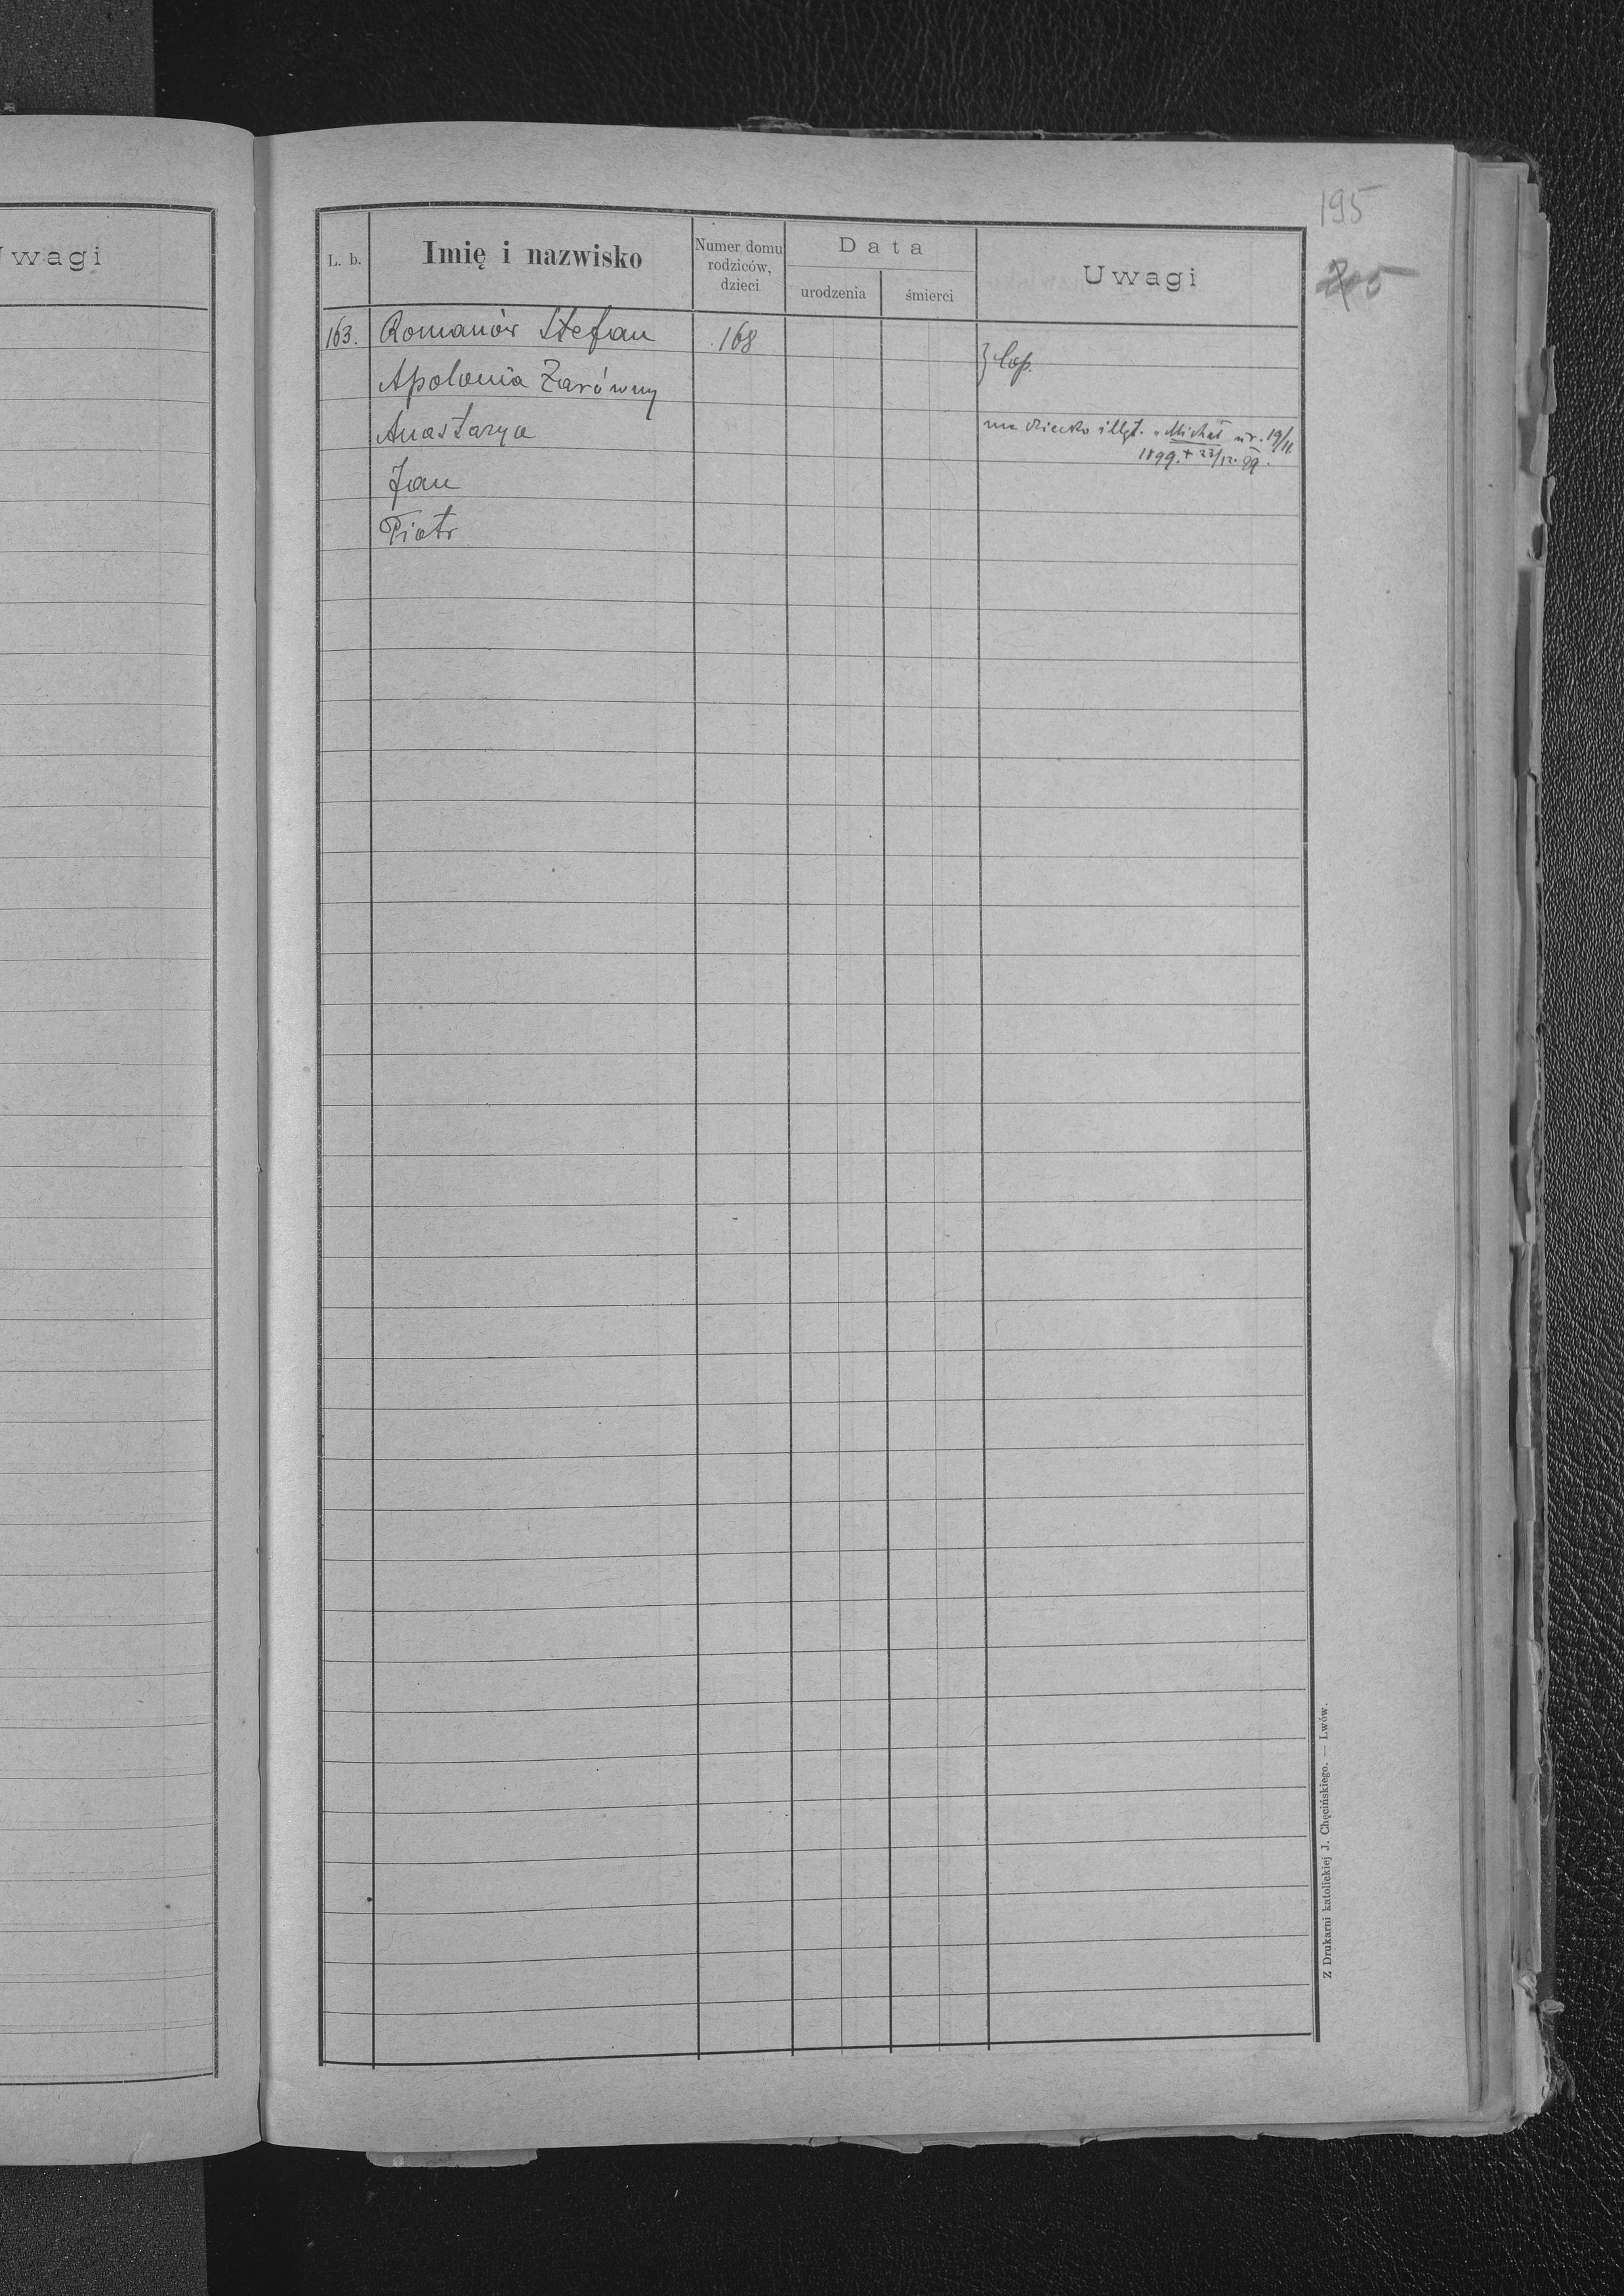 wagi
195
205
L. b.
Imię i nazwisko
Numer domu
rodziców,
dzieci
Data
urodzenia
śmierci
Uwagi
163. Romanów Stefan 168
} Cop.
Apolonia Zarówny
Anastazya ma dziecko illgt. „Michał ur. 19/11.
1899. + 23/12. 99.
Jan
Piotr
Z Drukarni katolickiej J. Chęcińskiego. — Lwów.